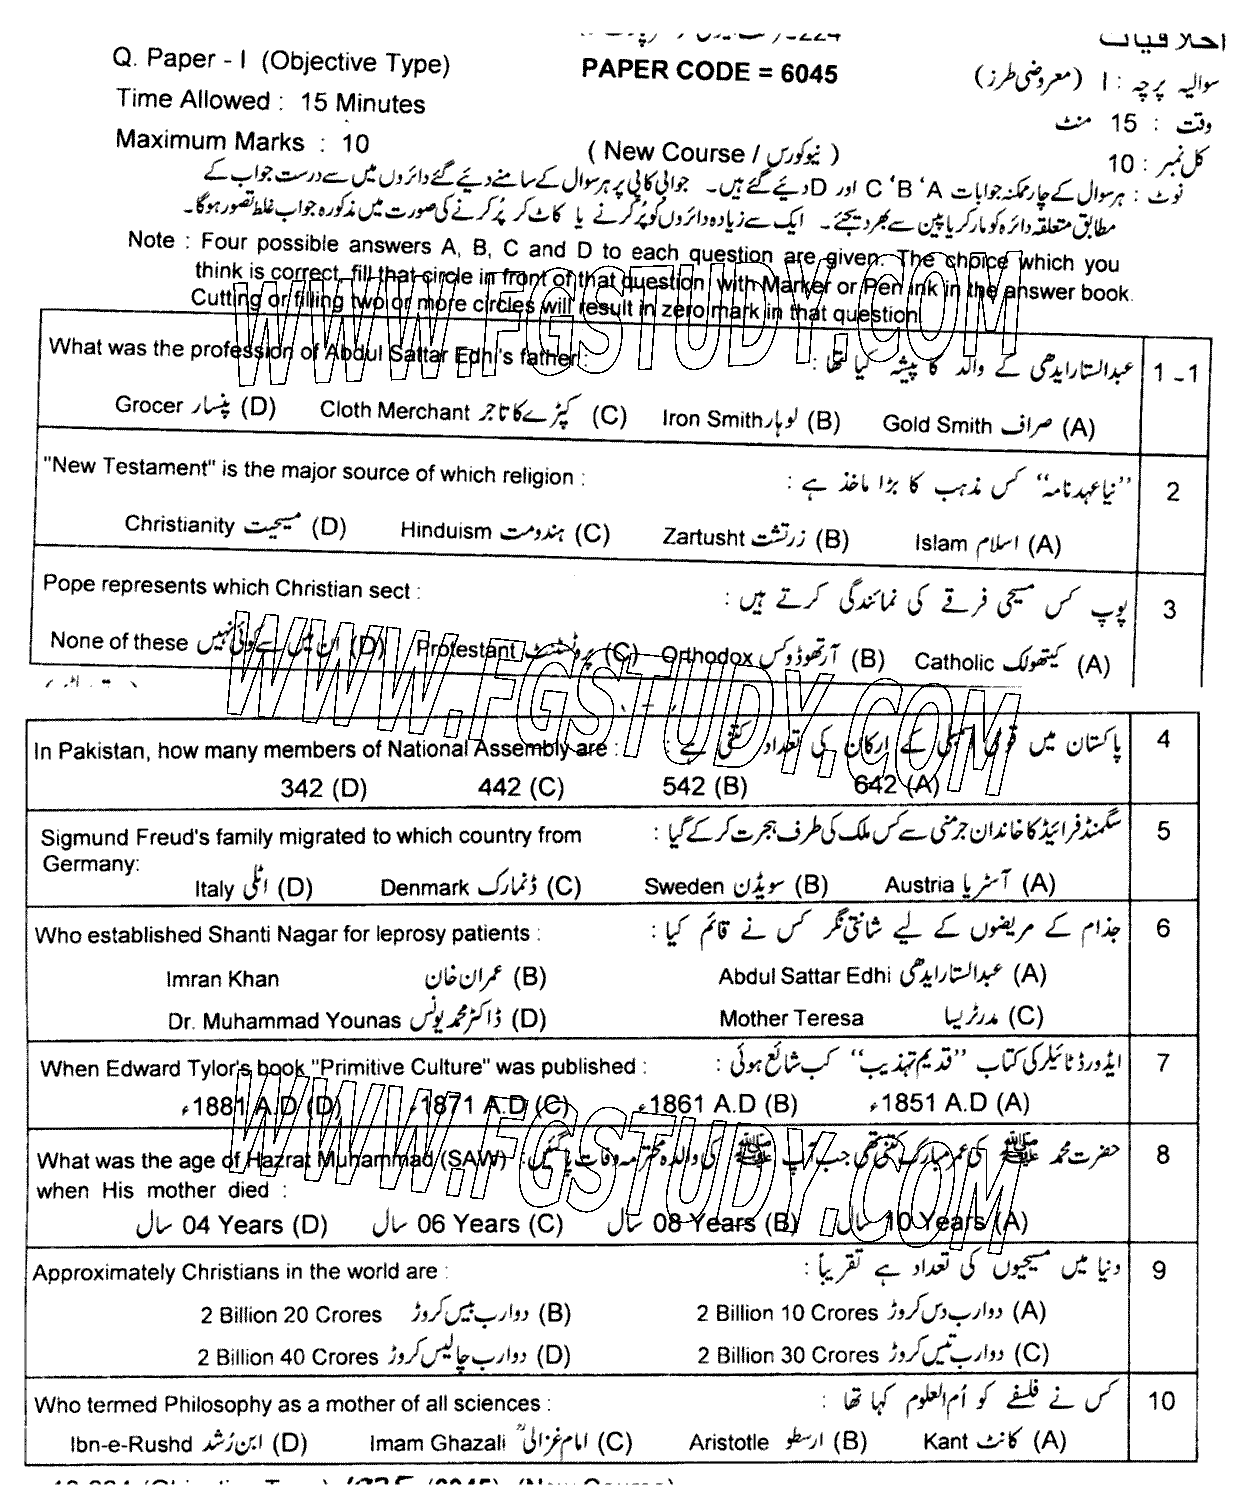 اخلاقیات
Q. Paper - I (Objective Type) PAPER CODE = 6045 سوالیہ پرچہ : I (معروضی طرز)
Time Allowed : 15 Minutes وقت : 15 منٹ
Maximum Marks : 10 ( New Course / نیوکورس ) کل نمبر : 10
نوٹ : ہر سوال کے چار ممکنہ جوابات A ‘ B ‘ C اور D دیئے گئے ہیں۔ جوابی کاپی پر ہر سوال کے سامنے دیئے گئے دائروں میں سے درست جواب کے
مطابق متعلقہ دائرہ کو مارکر یا پین سے بھر دیجئے۔ ایک سے زیادہ دائروں کو پُر کرنے یا کاٹ کر پُر کرنے کی صورت میں مذکورہ جواب غلط تصور ہوگا۔
Note : Four possible answers A, B, C and D to each question are given. The choice which you
think is correct, fill that circle in front of that question with Marker or Pen ink in the answer book.
Cutting or filling two or more circles will result in zero mark in that question.
WWW.FGSTUDY.COM
What was the profession of Abdul Sattar Edhi's father : عبدالستار ایدھی کے والد کا پیشہ کیا تھا : 1-1
Grocer پنسار (D) Cloth Merchant کپڑے کا تاجر (C) Iron Smith لوہار (B) Gold Smith صراف (A)
"New Testament" is the major source of which religion : ’’نیا عہدنامہ‘‘ کس مذہب کا بڑا ماخذ ہے : 2
Christianity مسیحیت (D) Hinduism ہندومت (C) Zartusht زرتشت (B) Islam اسلام (A)
Pope represents which Christian sect : پوپ کس مسیحی فرقے کی نمائندگی کرتے ہیں : 3
None of these ان میں سے کوئی نہیں (D) Protestant پروٹسٹنٹ (C) Orthodox آرتھوڈوکس (B) Catholic کیتھولک (A)
WWW.FGSTUDY.COM
In Pakistan, how many members of National Assembly are : پاکستان میں قومی اسمبلی کے ارکان کی تعداد کتنی ہے : 4
342 (D) 442 (C) 542 (B) 642 (A)
Sigmund Freud's family migrated to which country from سگمنڈ فرائیڈ کا خاندان جرمنی سے کس ملک کی طرف ہجرت کر کے گیا : 5
Germany:
Italy اٹلی (D) Denmark ڈنمارک (C) Sweden سویڈن (B) Austria آسٹریا (A)
Who established Shanti Nagar for leprosy patients : جذام کے مریضوں کے لیے شانتی نگر کس نے قائم کیا : 6
Imran Khan عمران خان (B) Abdul Sattar Edhi عبدالستار ایدھی (A)
Dr. Muhammad Younas ڈاکٹر محمد یونس (D) Mother Teresa مدر ٹریسا (C)
When Edward Tylor's book "Primitive Culture" was published : ایڈورڈ ٹائیلر کی کتاب ’’قدیم تہذیب‘‘ کب شائع ہوئی : 7
ء1881 A.D (D) ء1871 A.D (C) ء1861 A.D (B) ء1851 A.D (A)
WWW.FGSTUDY.COM
What was the age of Hazrat Muhammad (SAW) حضرت محمد ﷺ کی عمر مبارک کتنی تھی جب آپ ﷺ کی والدہ محترمہ وفات پا گئیں : 8
when His mother died :
04 Years سال (D) 06 Years سال (C) 08 Years سال (B) 10 Years سال (A)
Approximately Christians in the world are : دنیا میں مسیحیوں کی تعداد ہے تقریباً : 9
2 Billion 20 Crores دو ارب بیس کروڑ (B) 2 Billion 10 Crores دو ارب دس کروڑ (A)
2 Billion 40 Crores دو ارب چالیس کروڑ (D) 2 Billion 30 Crores دو ارب تیس کروڑ (C)
Who termed Philosophy as a mother of all sciences : کس نے فلسفے کو اُم العلوم کہا تھا : 10
Ibn-e-Rushd ابن رُشد (D) Imam Ghazali امام غزالیؒ (C) Aristotle ارسطو (B) Kant کانٹ (A)